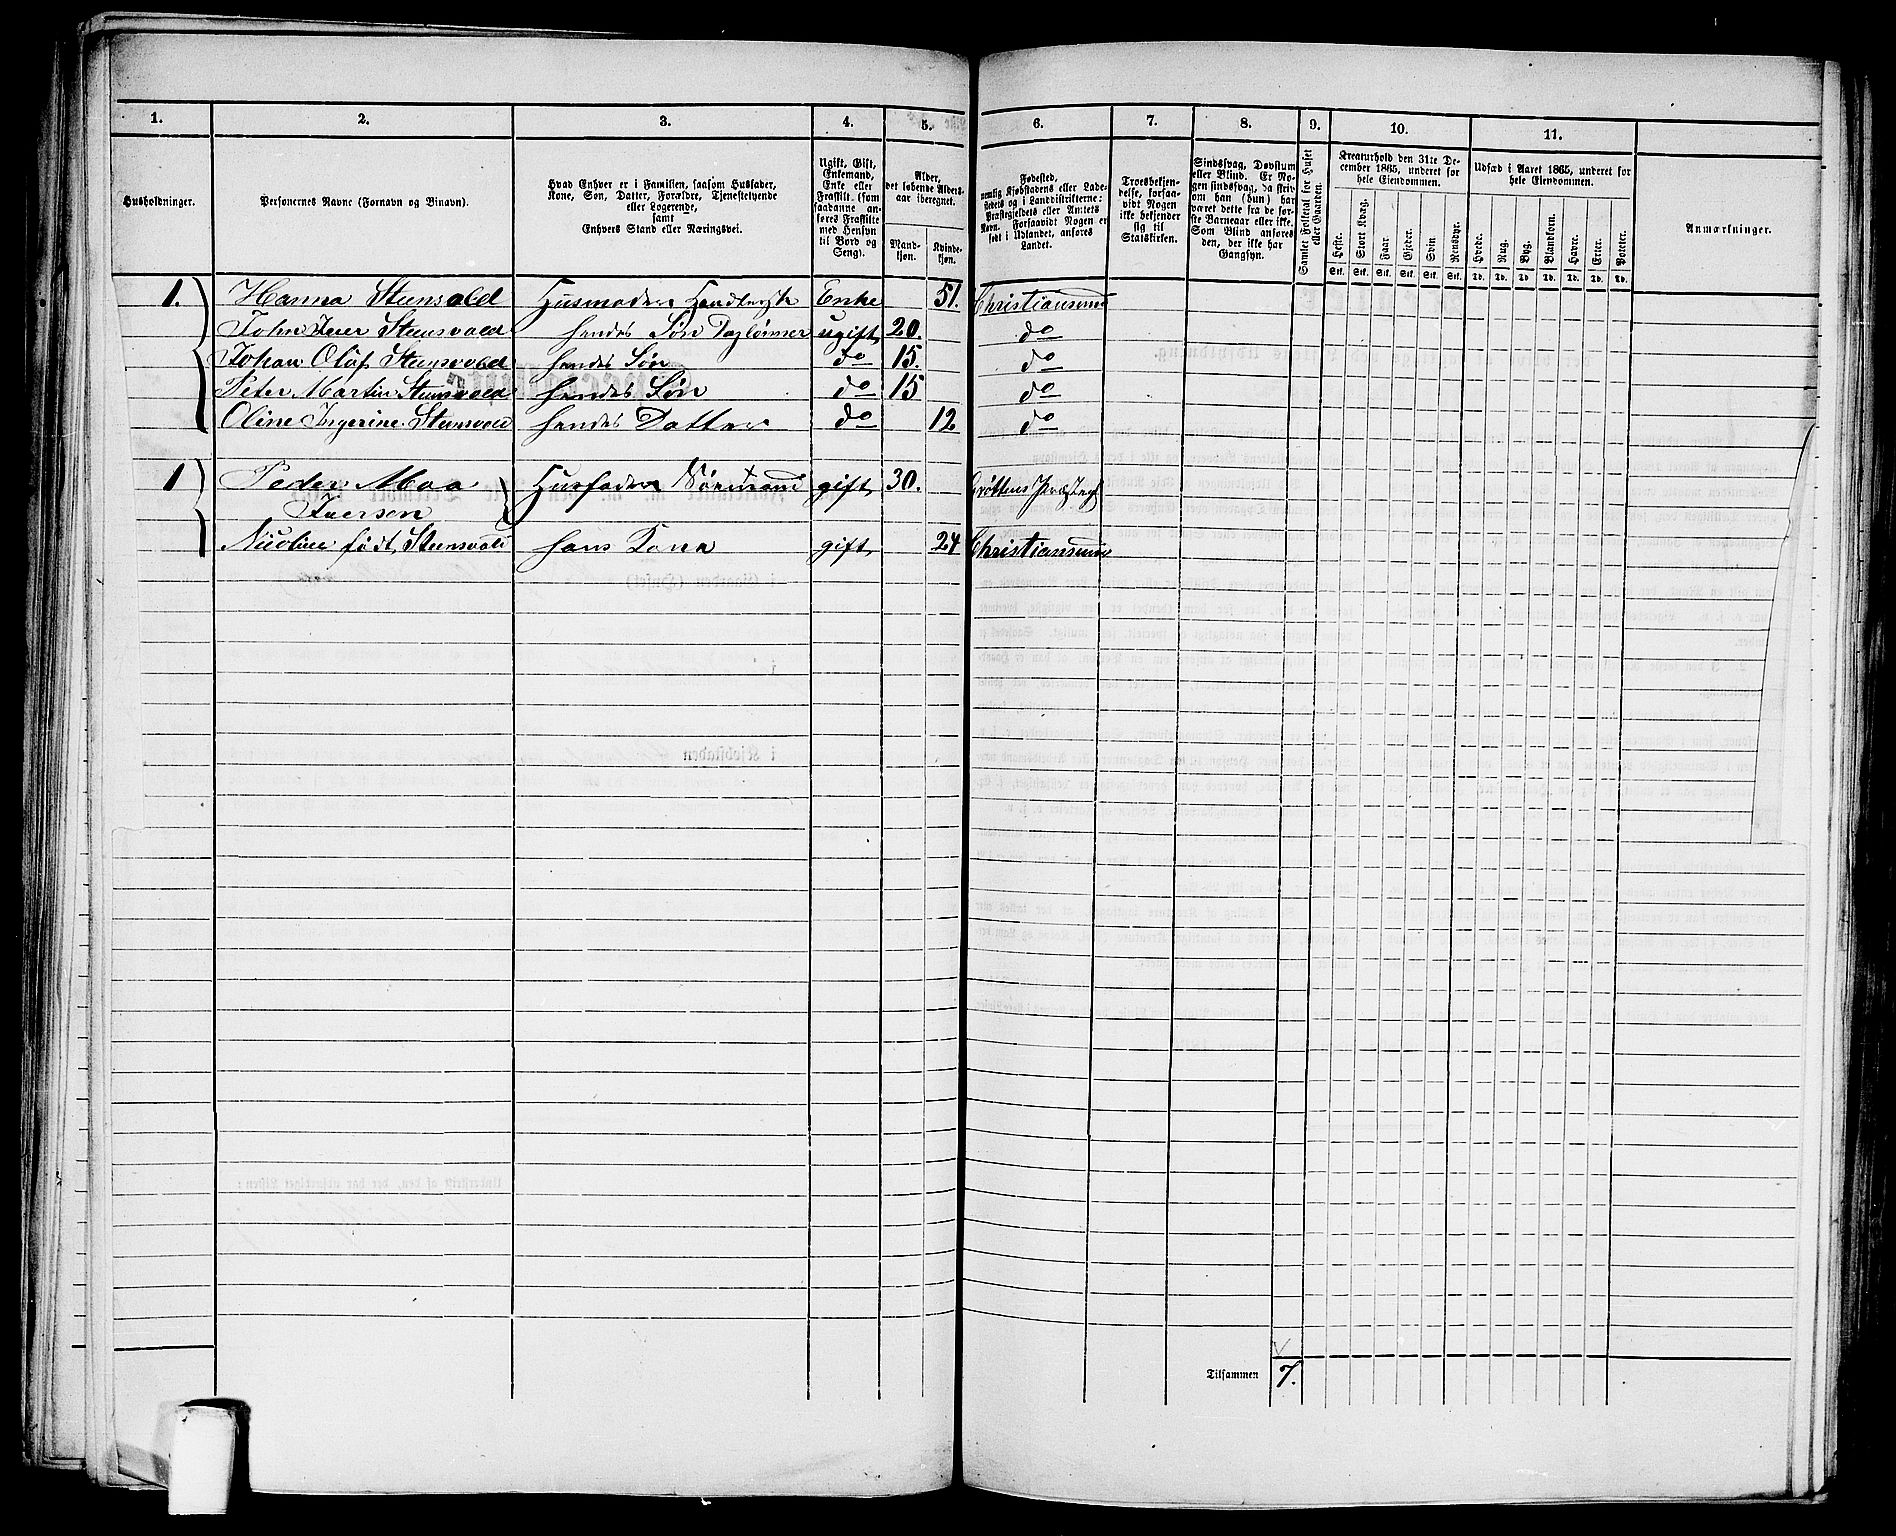 1.
2.
3.
4.
5.
6.
7.
8.
9.
10.
11.
Husholdninger.
Personernes Navne (Fornavn og Binavn).
Hvad Enhver er i Familien, saasom Husfader,
Kone, Søn, Datter, Forældre, Tjenestetyende
eller Logerende,
samt
Enhvers Stand eller Næringsvei.
Ugift, Gift,
Enkemand,
Enke eller
Fraskilt (som
saadanne an-
føres Fraskilte
med Hensyn
til Bord og
Seng).
Alder,
det løbende Alders-
aar iberegnet.
Mand-
kjøn.
Kvinde-
kjøn.
Fødested,
nemlig Kjøbstadens eller Lade-
stedets og i Landdistrikterne:
Præstegjeldets eller Amtets
Navn. Forsaavidt Nogen er
født i Udlandet, anføres
Landet.
Troesbekjen-
delse, forsaa-
vidt Nogen
ikke bekjender
sig til
Statskirken.
Sindssvag, Døvstum
eller Blind. Er No-
gen sindssvag, da skriv
om han (hun) har
været dette fra de før-
ste Barneaar eller ikke.
Som Blind anføres
den, der ikke har
Gangsyn.
Samlet Folketal for Huset
eller Gaarden.
Kreaturhold den 31te De-
cember 1865, underet for
hele Eiendommen.
Heste.
Stort Kvæg.
Faar.
Gjeder.
Svin
Rensdyr.
Stk. Stk. Stk. Stk. Stk. Stk.
Udsæd i Aaret 1865, underet for
hele Eiendommen.
Hvede.
Rug.
Byg.
Blandkorn.
Havre.
Erter.
Poteter.
Td. Td. Td. Td. Td. Td. Td.
Anmærkninger.
1. Hanna Stensvold Husmoder Enke 51. Christiansund
John Iver Stensvold hendes Søn Daglønner ugift 20. do
Johan Oluf Stensvold hendes Søn do 15. do
Peter Martin Stensvold hendes Søn do 15 do
Oline Ingerine Stensvold hendes Datter do 12 do
1 Peder Moa Husfader Sømand gift 30. Grøttens Præstegj
Iversen
Nicoline født Stensvold hans Kone gift 24 Christiansund
Tilsammen 7.